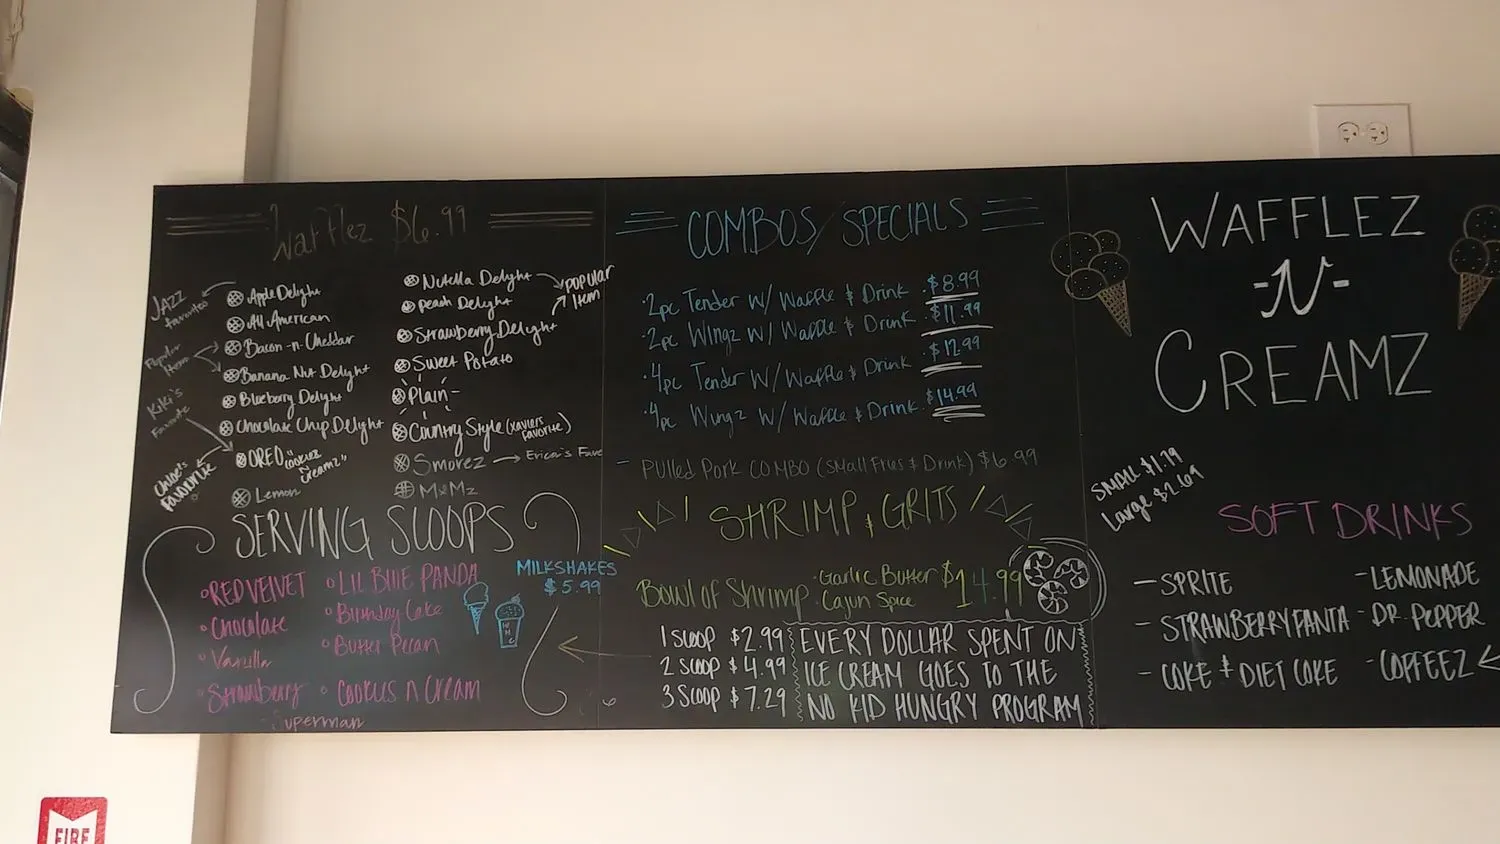 Wafflez $6.99
JAZZ favorites
Apple Delight
All American
Popular Item
Bacon-n-Cheddar
Banana Nut Delight
Blueberry Delight
KiKi's Favorite
Chocolate Chip Delight
OREO "Cookiez n Creamz"
Chloe's FAVORITE
Lemon
Nutella Delight
Peach Delight
POPULAR Item
Strawberry Delight
Sweet Potato
Plain
Country Style (Xaviers Favorite)
Smorez
Erica's Fave
M&Mz
SERVING SCOOPS
RED VELVET
Chocolate
Vanilla
Strawberry
Superman
LIL BLUE PANDA
Birthday Cake
Butter Pecan
Cookies n Cream
MILKSHAKES
$5.99
COMBOS/SPECIALS
2pc Tender W/ Waffle & Drink $8.99
2pc Wingz W/ Waffle & Drink $11.99
4pc Tender W/ Waffle & Drink $12.99
4pc Wingz W/ Waffle & Drink $14.99
- Pulled Pork COMBO (Small Fries & Drink) $6.99
SHRIMP & GRITS
Bowl of Shrimp
Garlic Butter
Cajun Spice
$14.99
1 SCOOP $2.99
2 SCOOP $4.99
3 SCOOP $7.29
EVERY DOLLAR SPENT ON
ICE CREAM GOES TO THE
NO KID HUNGRY PROGRAM
WAFFLEZ
-N-
CREAMZ
SMALL $1.79
Large $2.69
SOFT DRINKS
- SPRITE
- STRAWBERRY FANTA
- COKE & DIET COKE
- LEMONADE
- DR. PEPPER
- COFFEEZ
FIRE